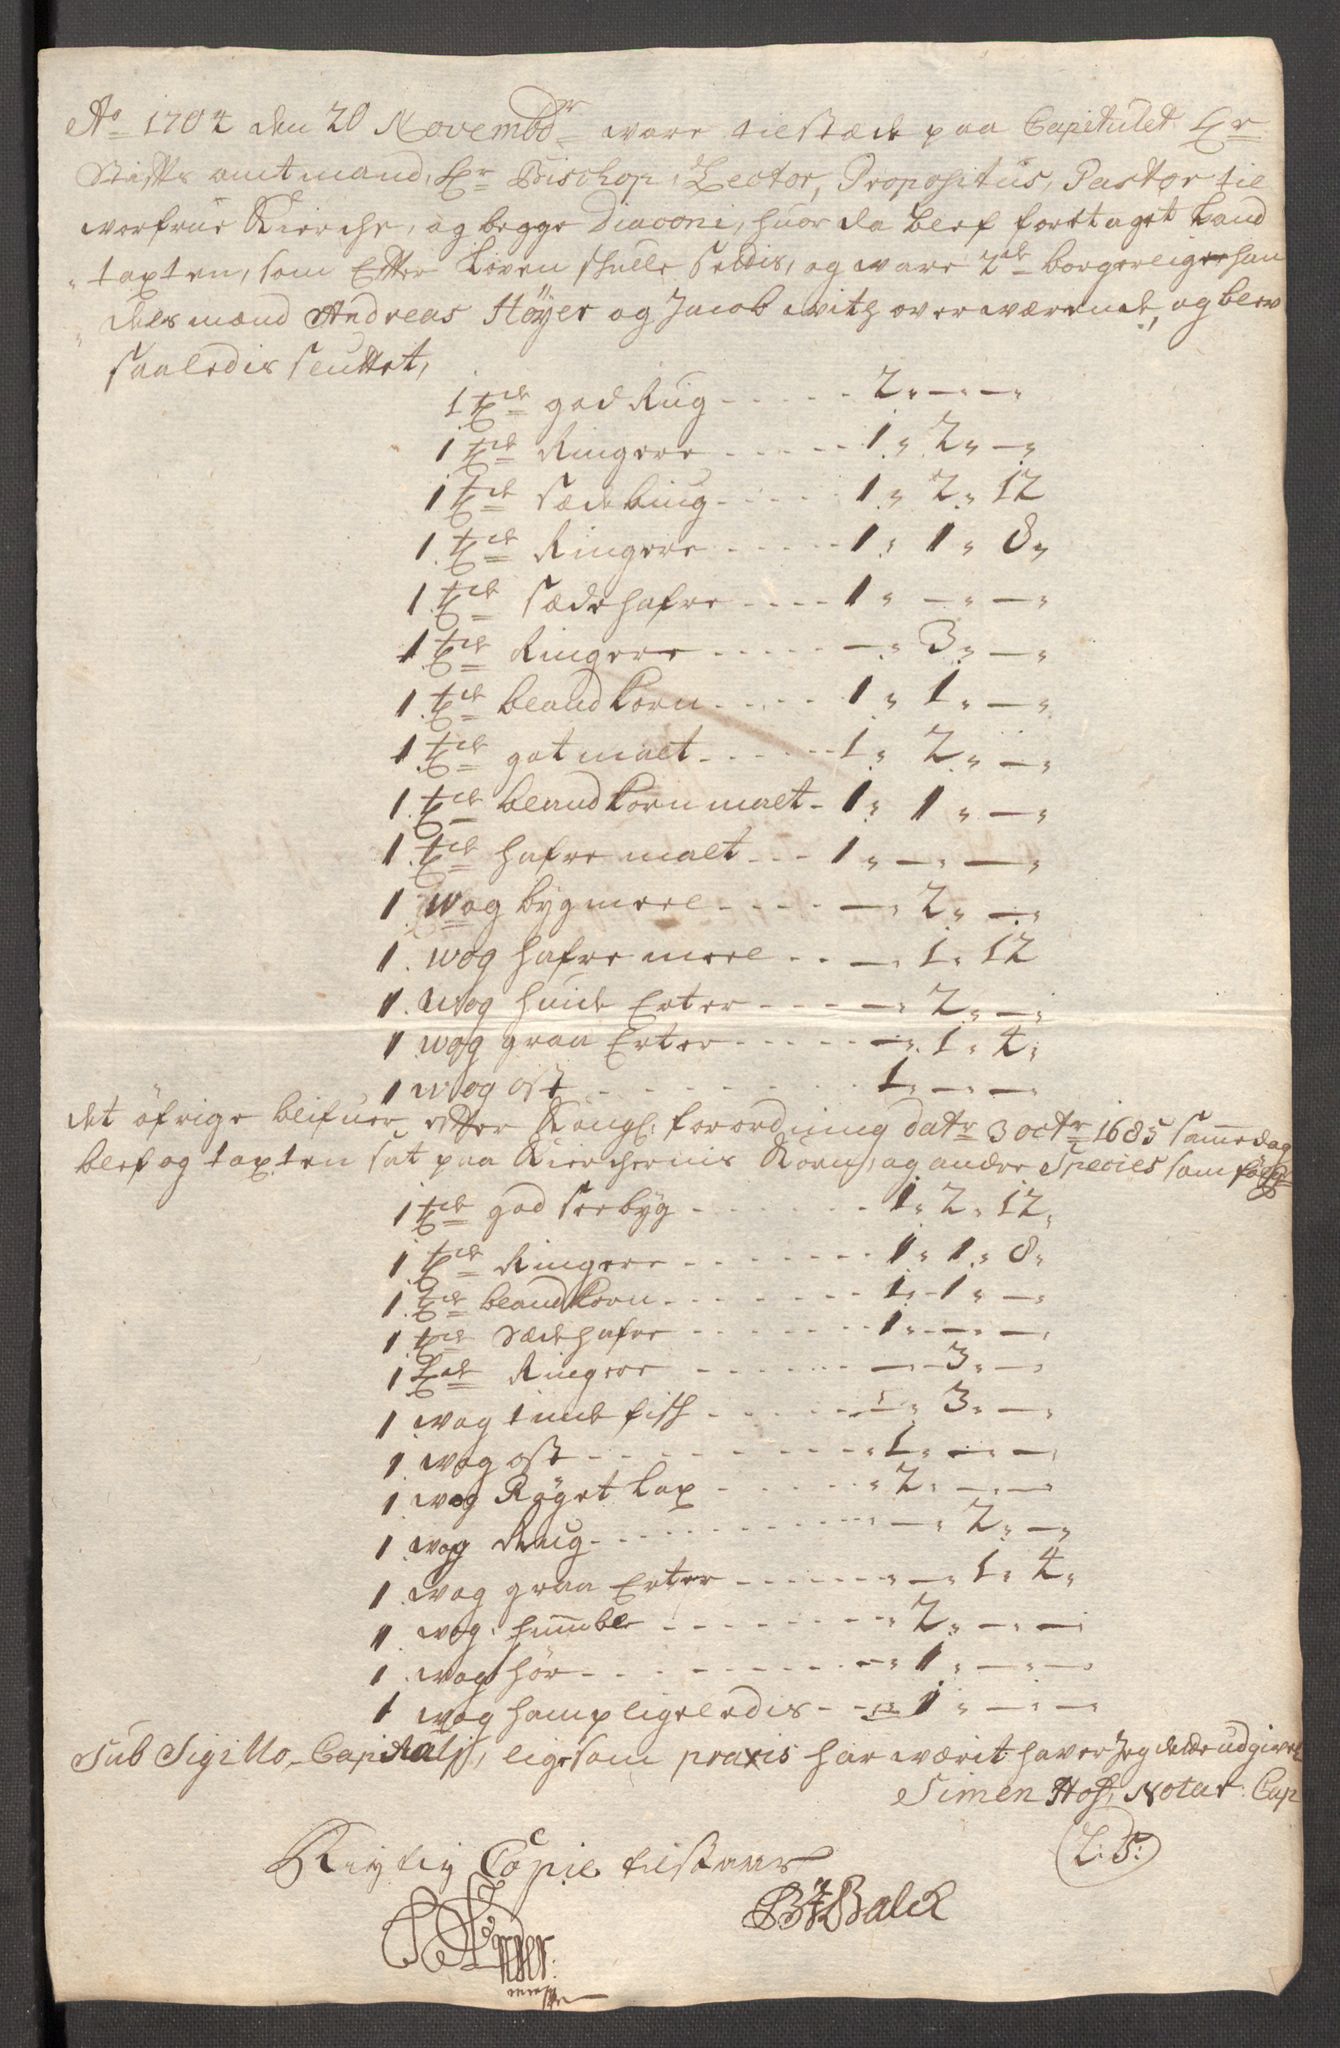 Ao 1704 den 20 Novembr ware tilstæde paa Capitulet Hr
Stifts amtmand, Hr Bischop, Lector, Propositus, Pastor til
worfrue Kierche, og begge Diaconi, huor da blef foretaget Land
taxten, som Efter Loven skulle settis, og ware 2de borgerlige han
dels mænd Andreas Höyer og Jacob witz overwærende, og blev
saaledis sluttet,
1 tde god Rug - - - - - 2„ — „ — „
1 tde Ringere - - - - - 1„ 2„ — „
1 tde sæde biug - - - - 1„ 2„ 12
1 tde Ringere - - - - - 1„ 1„ 8„
1 tde sæde hafre - - - - 1„ — „ — „
1 tde Ringere - - - - - — „ 3„ — „
1 tde bland korn - - - - 1„ 1„ — „
1 tde got malt - - - - - 1„ 2„ — „
1 tde bland korn malt - 1„ 1„ — „
1 tde hafre malt - - - 1„ — „ — „
1 wog byg meel - - - - — „ 2„ — „
1 wog hafre meel - - — „ 1„ 12
1 wog huide Erter - - - - — „ 2„ — „
1 wog graa Erter - - - - - — „ 1„ 4„
1 wog ost - - - - - - - 1„ — „ —
det öfrige blifuer efter Kongl: forordning datr 3 octr 1685 samme dag
blef og taxten sat paa Kierchernis Korn, og andre Species som følger
1 tde god seebyg - - - - - - 1„ 2„ 12„
1 tde Ringere - - - - - - 1„ 1„ 8„
1 tde bland korn - - - - - - 1„ 1„ — „
1 tde Sæde hafre - - - - - - 1„ — „ — „
1 tde Ringere - - - - - - — „ 3„ — „
1 wog tinde fisk - - - - - - — „ 3„ — „
1 wog ost - - - - - - - - 1„ — „ — „
1 wog Röget Lax - - - - - 2„ — „ — „
1 wog Raug - - - - - - - — „ 2„ — „
1 wog graa Erter - - - - - — „ 1„ 4„
1 wog humble - - - - - - - 2„ — „ — „
1 wog hör - - - - - - - - 1„ — „ — „
1 wog hamp ligeledis - - - 1„ — „ —
Sub Sigillo Capituli, ligesom praxis har wærit haver Jeg dette udgivet
Simen Hof, Notar: Cap
(L: S:)
Rigtig Copie tilstaar
Balck